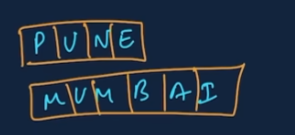 PUNE
MUMBAI